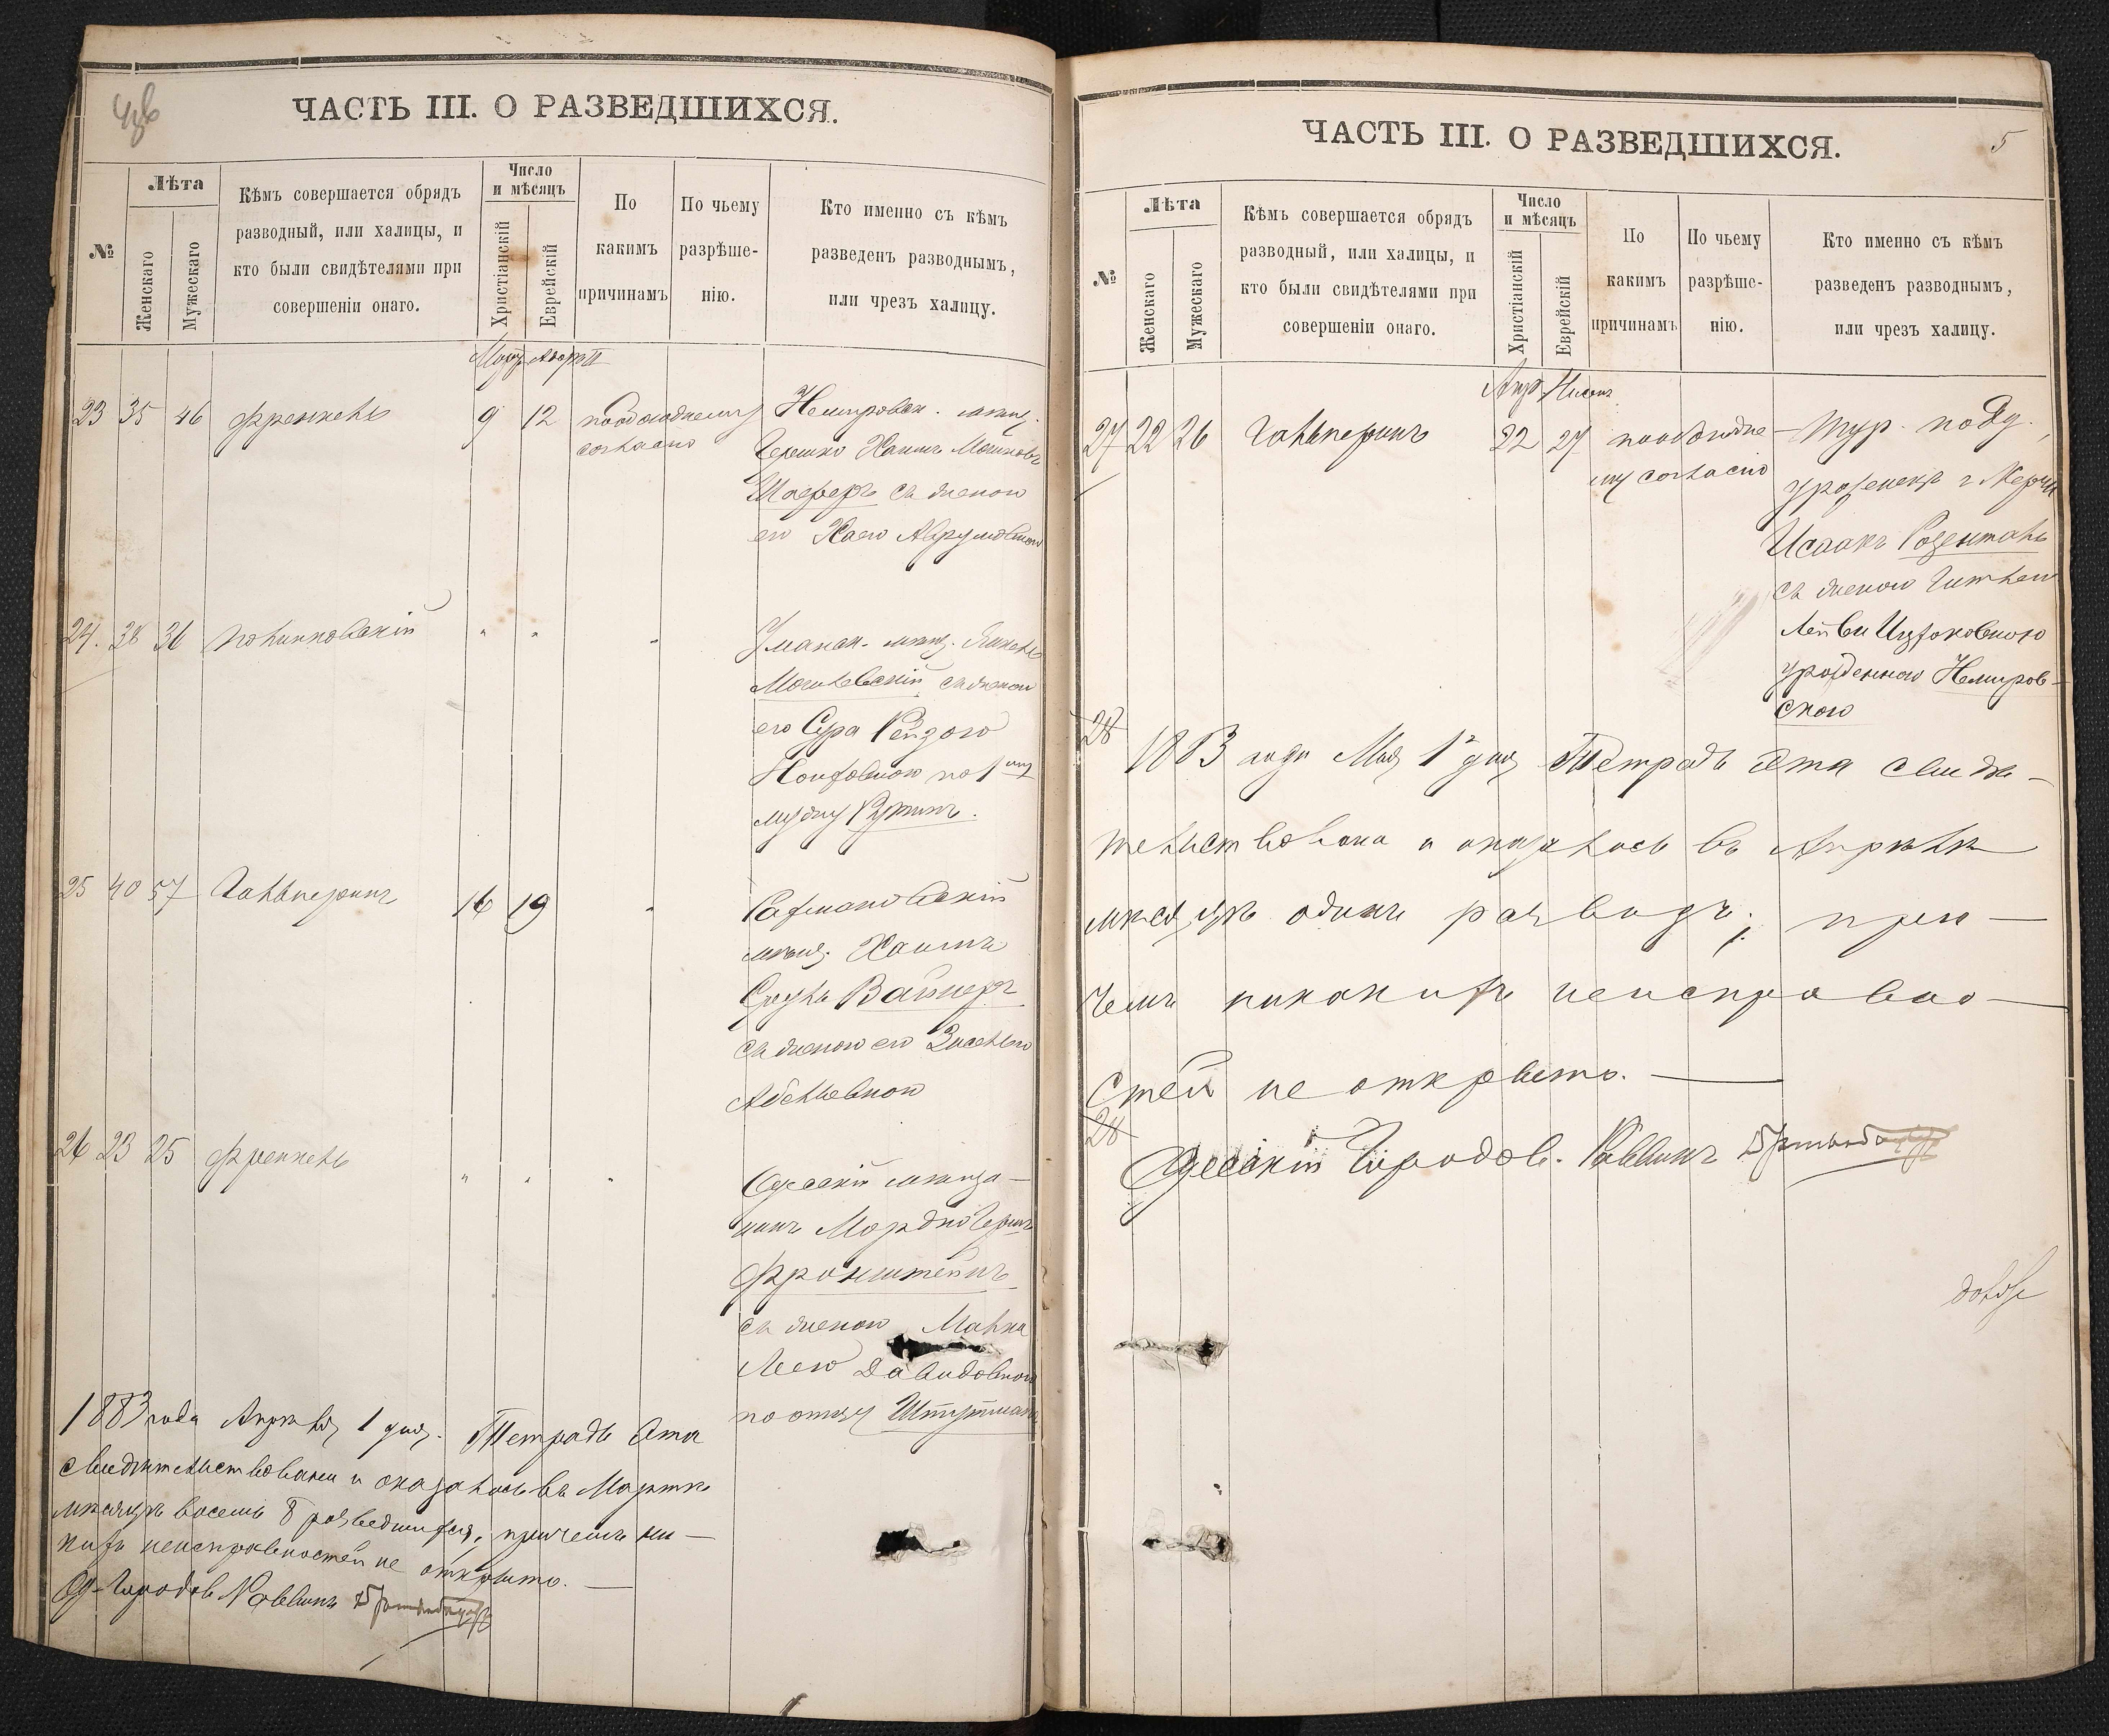 ЧАСТЬ III. О РАЗВЕДШИХСЯ.
№
Лѣта
Женскаго
Мужескаго
Кѣмъ совершается обрядъ
разводный, или халицы, и
кто были свидѣтелями при
совершеніи онаго.
Число
и мѣсяцъ
Христіанскій
Еврейскій
По
какимъ
причинамъ
По чьему
разрѣше-
нію.
Кто именно съ кѣмъ
разведенъ разводнымъ,
или чрезъ халицу.
Мартъ Адаръ II
23 35 46 Френкель 9 12 по обоюдному
согласію
Немировск. мѣщ.
Гершко Хаимъ Мошковъ
Шаеферъ съ женою
его Хаею Аврумовною
24. 38 36 Полинковскій " " "
Уманск. мѣщ. Янкель
Могилевскій съ женою
его Сура Рейзою
Іоиховною по 1му
мужу
25 40 57 Гальперинъ 16 19 "
мѣщ. Хаимъ
Сруль Вайнеръ
съ женою его Зиселью
Абельевною
26 23 25 Френкель " " "
Одесскій мѣща-
нинъ Мордко Герш
Фронштейнъ
съ женою Малка
Леею Давидовною
по отцу
1883 года Апрѣля 1 дня. Тетрадь эта
свидѣтельствована и оказалось въ Мартѣ
мѣсяцѣ восемь 8 разведшихся, причемъ ни-
кихъ неисправностей не открыто.
Од. Городов. Раввинъ
ЧАСТЬ III. О РАЗВЕДШИХСЯ.
5
№
Лѣта
Женскаго
Мужескаго
Кѣмъ совершается обрядъ
разводный, или халицы, и
кто были свидѣтелями при
совершеніи онаго.
Число
и мѣсяцъ
Христіанскій
Еврейскій
По
какимъ
причинамъ
По чьему
разрѣше-
нію.
Кто именно съ кѣмъ
разведенъ разводнымъ,
или чрезъ халицу.
Апр. Нисанъ
27 22 26 Гальперинъ 22 27 по обоюдно-
му согласію
Тур. подд.,
уроженецъ г. Керчи
Исаакъ Розенталь
съ женою Гитлею
Лейби Ицхоковною
урожденною Немиров-
скою
28
1883 года Мая 1 дня Тетрадь эта свидѣ-
тельствована и оказалось въ Апрѣлѣ
мѣсяцѣ одинъ разводъ; при-
чемъ никакихъ неисправно-
стей не открыто.
28
Одесскій Городов. Раввинъ